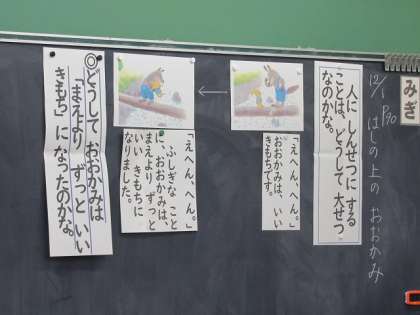 みぎ
12/1 P90
はしの上の おおかみ
人に しんせつに する
ことは、どうして 大せつ
なのかな。
「えへん、へん。」
おおかみは、いい
きもちです。
「えへん、へん。」
ふしぎな こと
に、おおかみは、
まえより ずっと
いい きもちに
なりました。
◎どうして おおかみは
「まえより ずっと いい
きもち」に なったのかな。